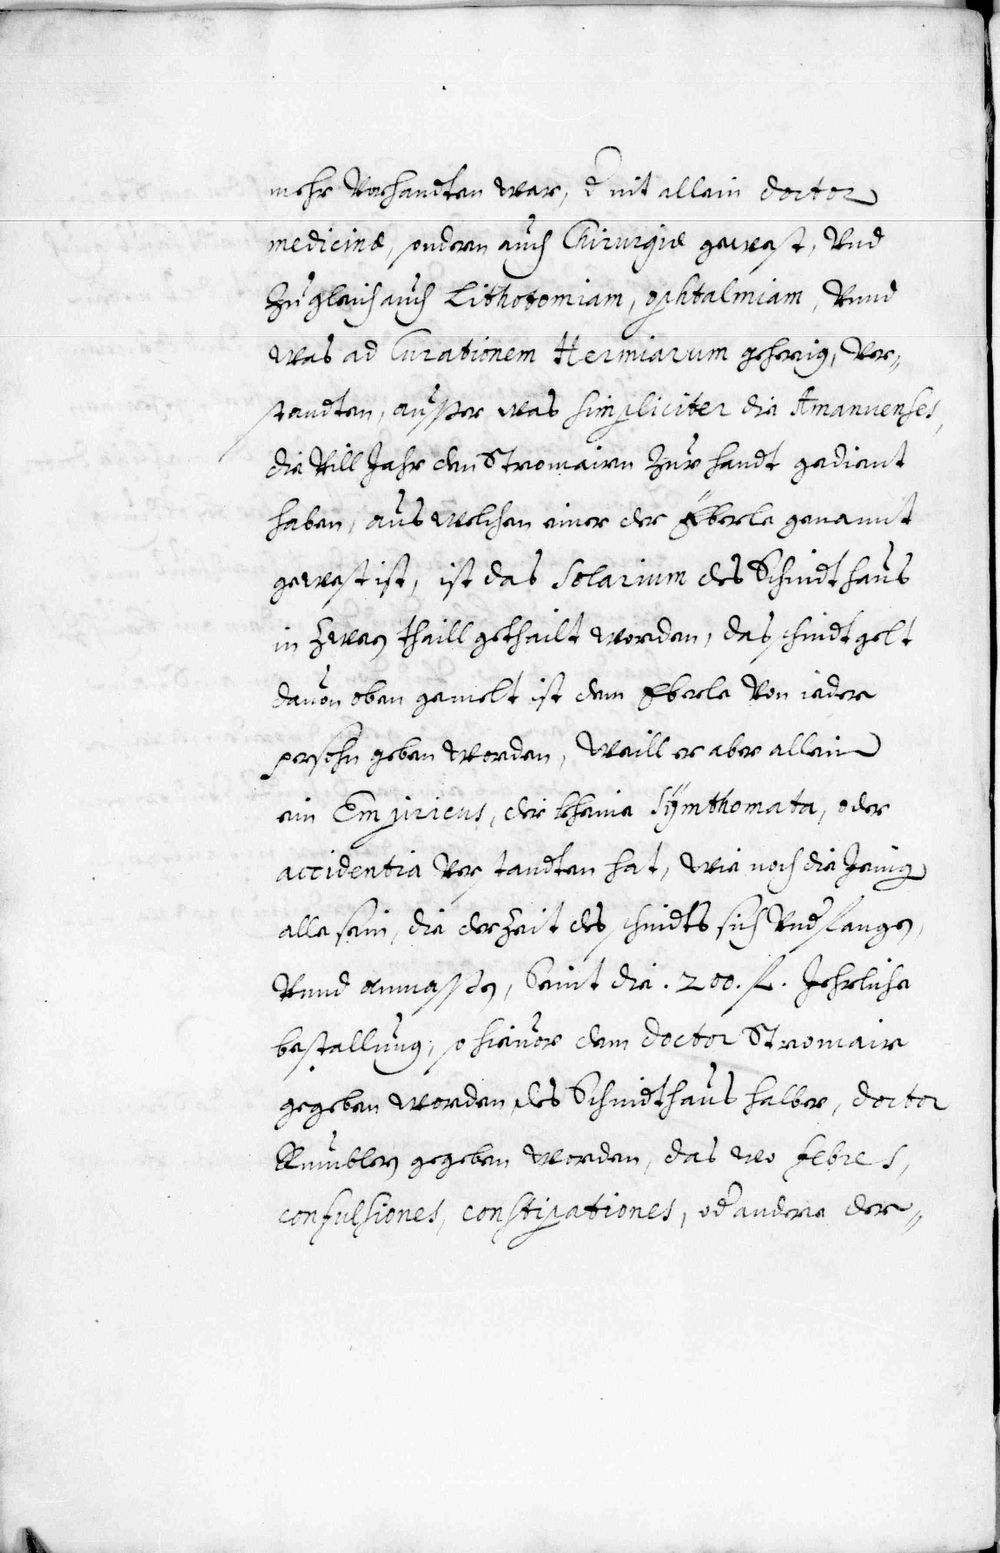 mehr Vorhandten war, d͛ nit allein doctor
medicinæ, sondern auch Chirurgiæ gewest, Vnd
Zugleich auch Lithotomiam, ophtalmiam, Vnnd
was ad Curationem Herniarum geherig, Ver„
standten, ausser was simpliciter die Amanuenses,
die Vill Jahr den Stromairn Zur handt gedient
haben, aus welchen einer der Eberle genannt
gewest ist, ist das Solarium des Schnidthaus
in Zway thaill gethailt worden, das schnidtgelt
dauon oben gemelt ist dem Eberle Von ieder
persohn geben worden, Weill er aber allein
ein Empiricus, der khaine Sÿmthomata, oder
accidentia Verstandten hat, wie noch die Jenig
alle sein, die der Zeit des schnidts sich Vnd
Vnnd anmassen, Seint die . 200. fl. Jehrliche
bestallung, so hieuor dem doctor Stromair
gegeben worden, des Schnidthaus halber, doctor
gegeben worden, das wo febres,
confulsiones, constipationes, od͛ andere der„